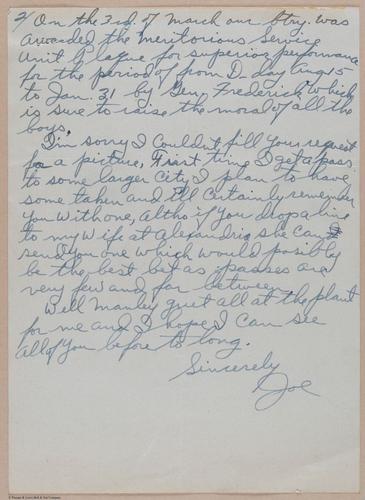 2/ On the 3rd. of March our Btry. was
awarded the Meritorious Service
Unit Plague for superior performance
for the period of from D-day Aug 15
to Jan. 31 by Gen. Frederick which
is sure to raise the moral of all the
boys.
I'm sorry I couldn't fill your request
for a picture, First time I get a pass
to some larger city I plan to have
some taken and I'll certainly remember
you with one, altho if you drop a line
to my wife at Alexandria she can
send you one which would posibly
be the best bet as passes are
very few and far between.
Well Manley greet all at the plant
for me and I hope I can see
all of you before to long.
Sincerely
Joe